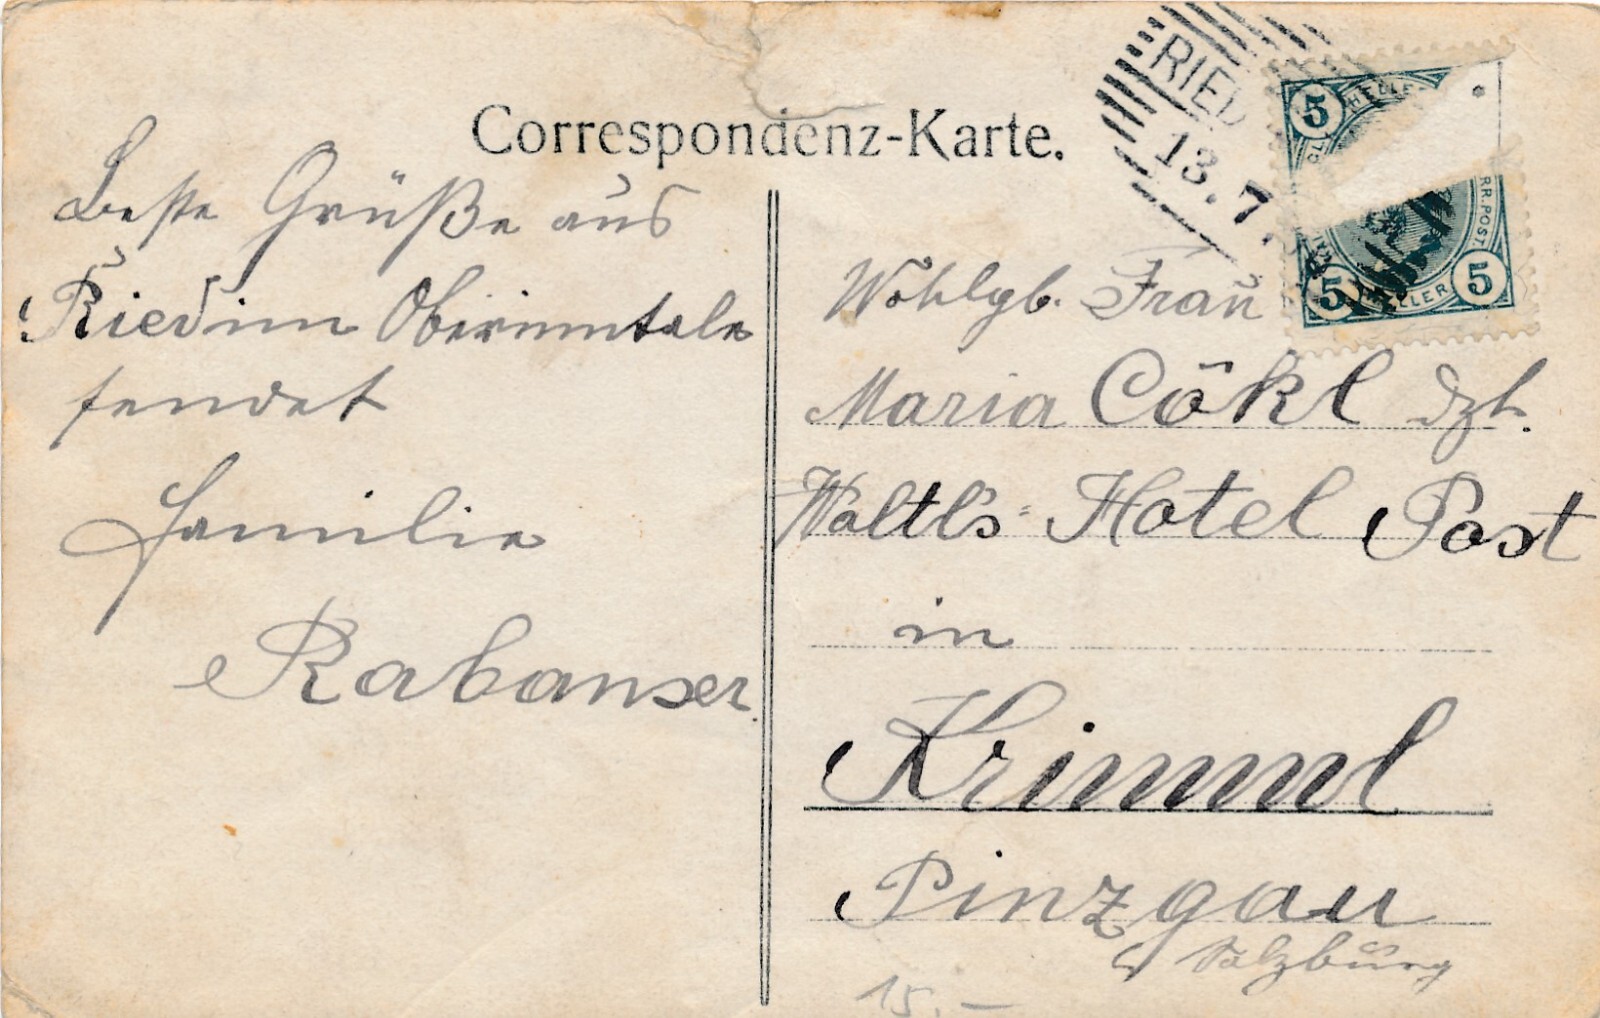 Correspondenz-Karte.
RIED
13.7.
5 HELLER
RR. POST.
5 HELLER 5
Beste Grüße aus
Ried im Oberinntale
sendet
Familie
Rabanser
Wohlgb. Frau
Maria Cökl dzt.
Waltl's Hotel Post
in
Krimml
Pinzgau
Salzburg
15.-